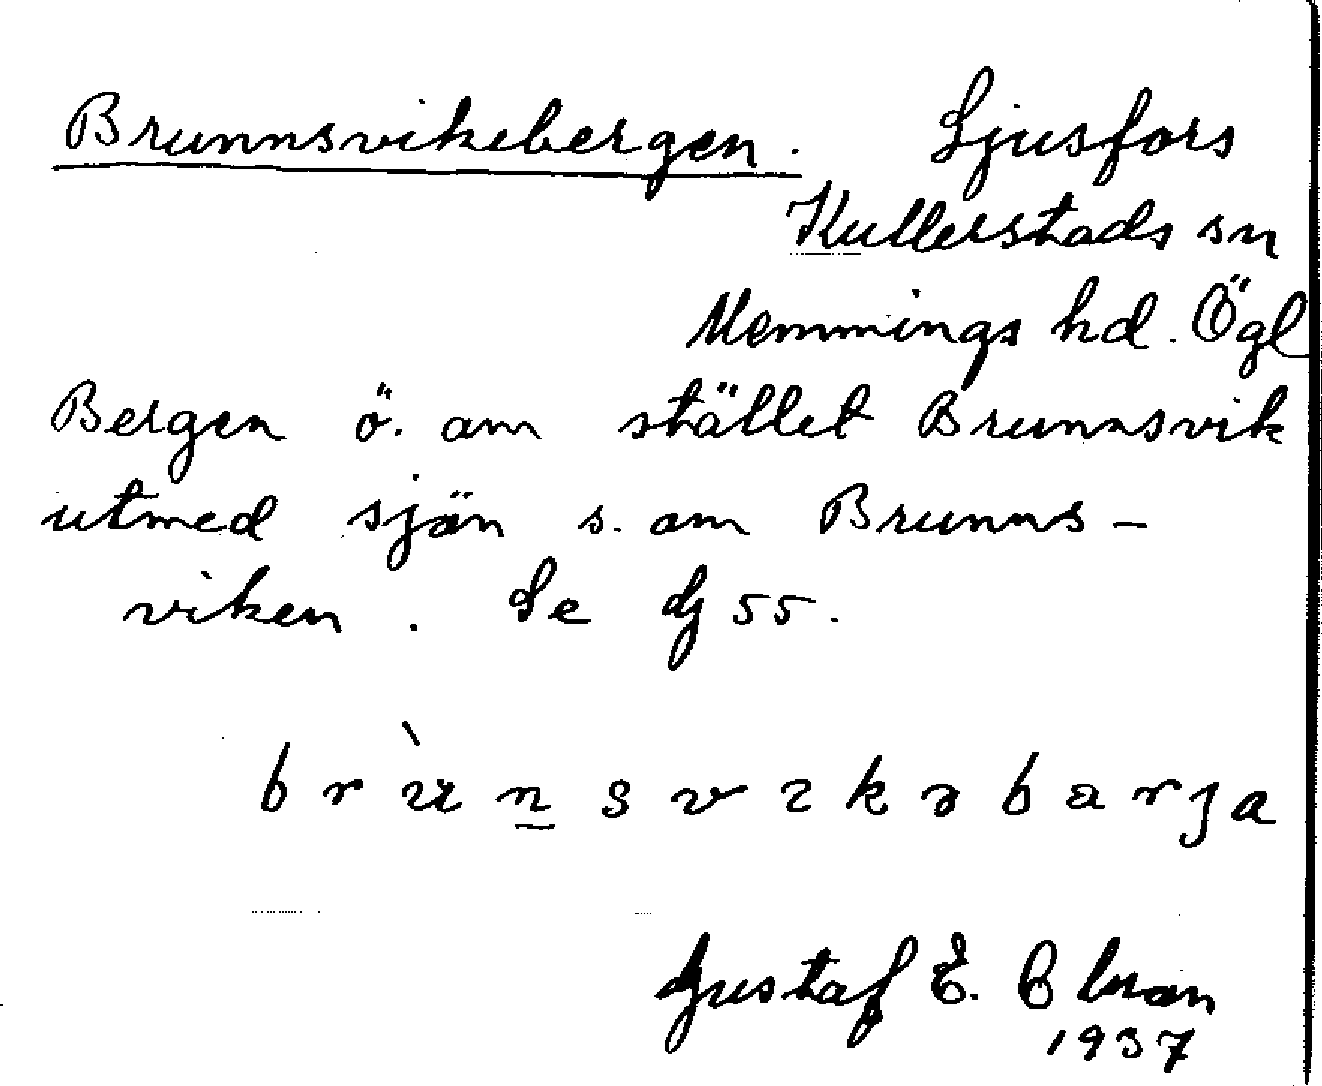 Brunnsvikebergen. Ljusfors
Kullerstads sn
Memmings hd. Ögl
Bergen ö. om stället Brunnsvik
utmed sjön s. om Brunns-
viken. Se dj 55.
brùn̲svikəbarja
Gustaf E.
1937